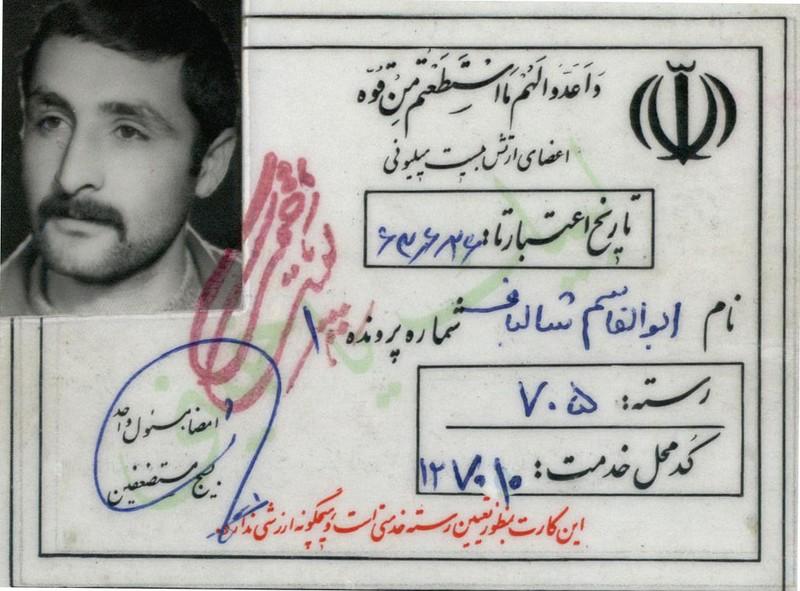 وَاَعِدّوالَهُم مَااسْتَطَعْتُم مِنْ قُوَّه
اعضای ارتش بیست میلیونی
تاریخ اعتبار تا: ۶۳/۶/۲۶
نام ابوالقاسم شالباف شماره پرونده ۱۰
رسته: ۷۰۵
کُد محل خدمت: ۱۲۷۰۱۰
امضا مسئول واحد
بسیج مستضعفین
این کارت بمنظور تعیین رسته خدمتی است و هیچگونه ارزشی ندارد.